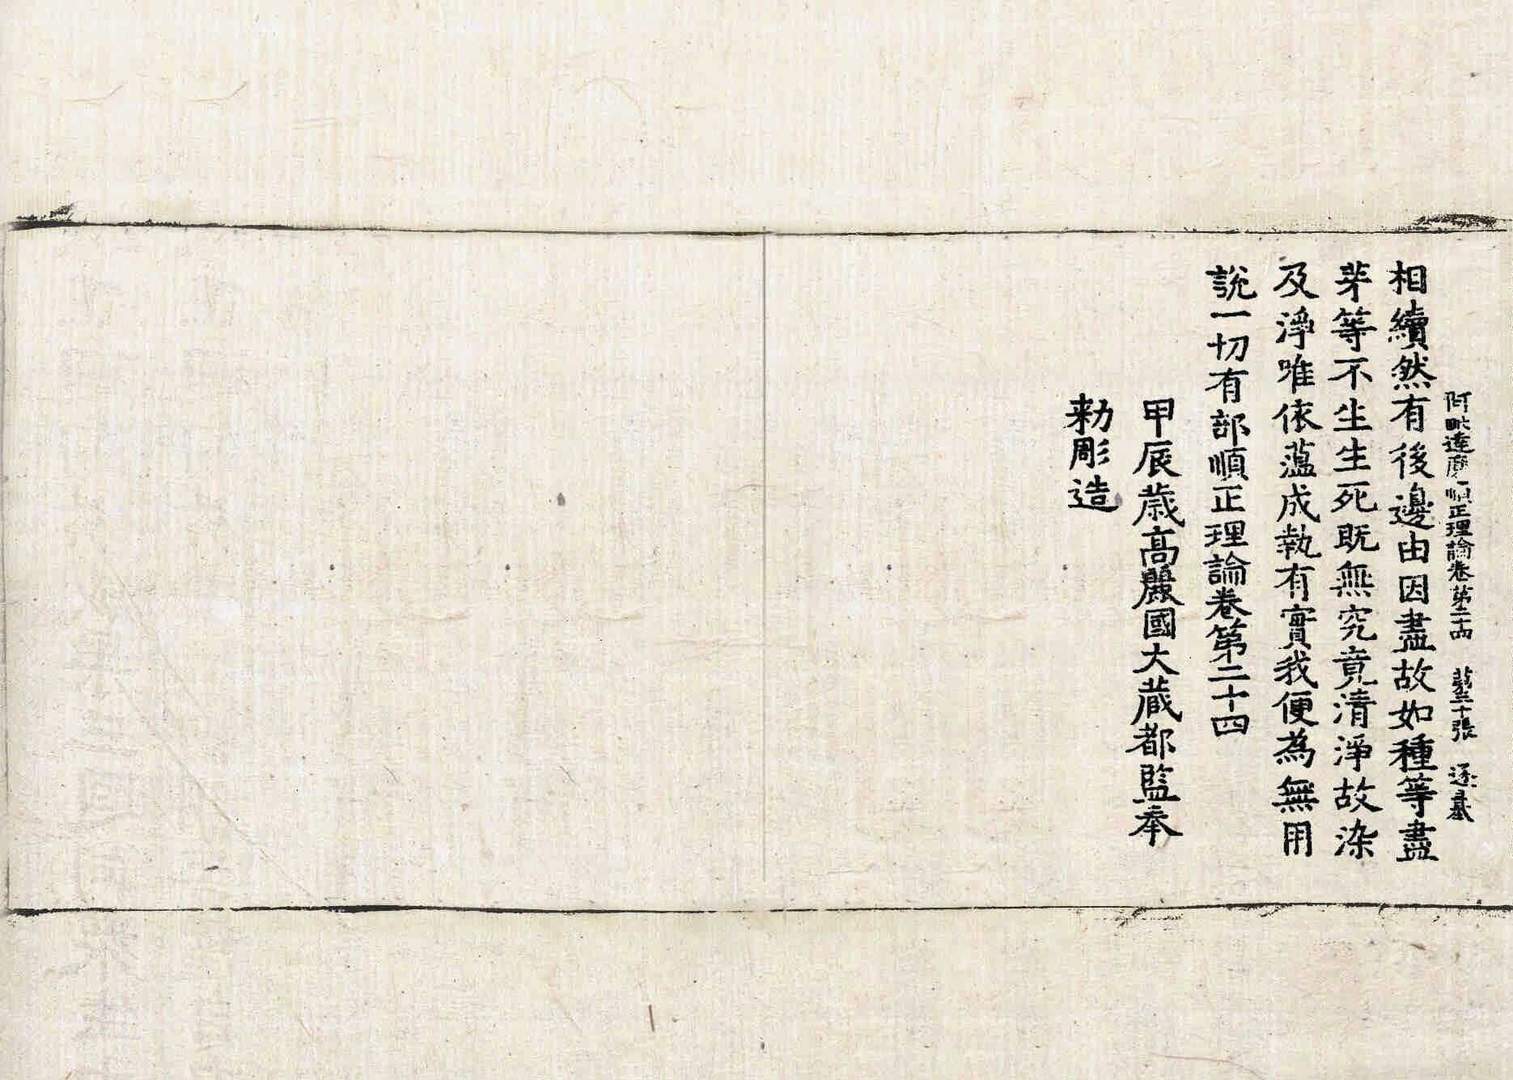 阿毗達磨順正理論卷第二十四 第三十張 逐
相續然有後邊由因盡故如種等盡
芽等不生生死旣無究竟清淨故染
及淨唯依蘊成執有實我便為無用
說一切有部順正理論卷第二十四
甲辰歲高麗國大藏都監奉
勅彫造